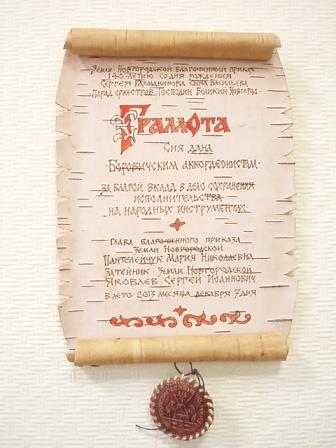 Земли Новгородской благочинный приказ
140-летию со дня рождения
Сергея Рахманинова сына Васильева
Парад оркестров. Господин Великий Новгород.
Грамота
Сия дана
Боровичским аккордеонистам
за благой вклад в дело сохранения
исполнительства
на народных инструментах
Глава благочинного приказа
Земли Новгородской
Пантелейчук Мария Николаевна
Затейник Земли Новгородской
Яковлев Сергей Иоаннович
в лето 2013 месяца декабря 7 дня